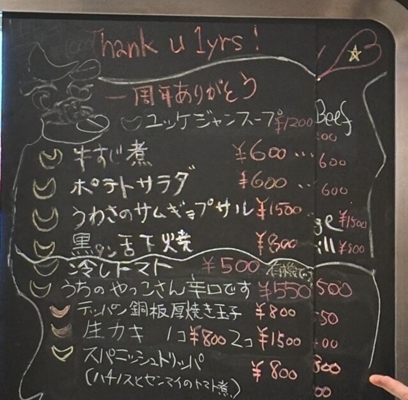 Thank u 1yrs!
一周年ありがとう
ユッケジャンスープ ¥1200
牛すじ煮 ¥600 ...
ポテトサラダ ¥600 ...
うわさのサムギョプサル ¥1500
黒タン舌下焼 ¥800
冷しトマト ¥500
うちのやっこさん辛口です ¥550
テッパン銅板厚焼き玉子 ¥800
生カキ 1コ¥800 2コ¥1500
スパニッシュトリッパ ¥800
(ハチノスとセンマイのトマト煮)
Beef
600
600
¥1500
¥800
500
800